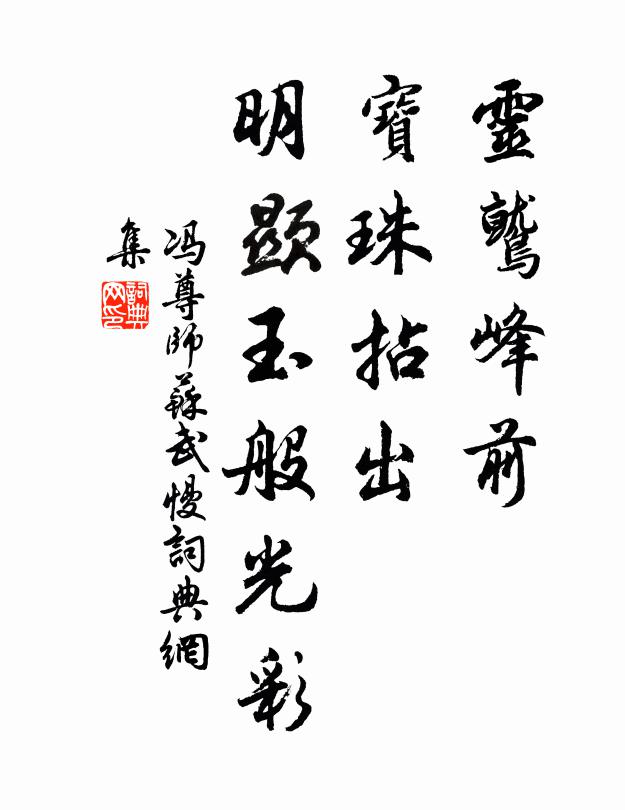 靈鷲峰前
寶珠拈出
明顯玉般光彩
冯尊師蘇武慢詞典網
集
詞典
网印